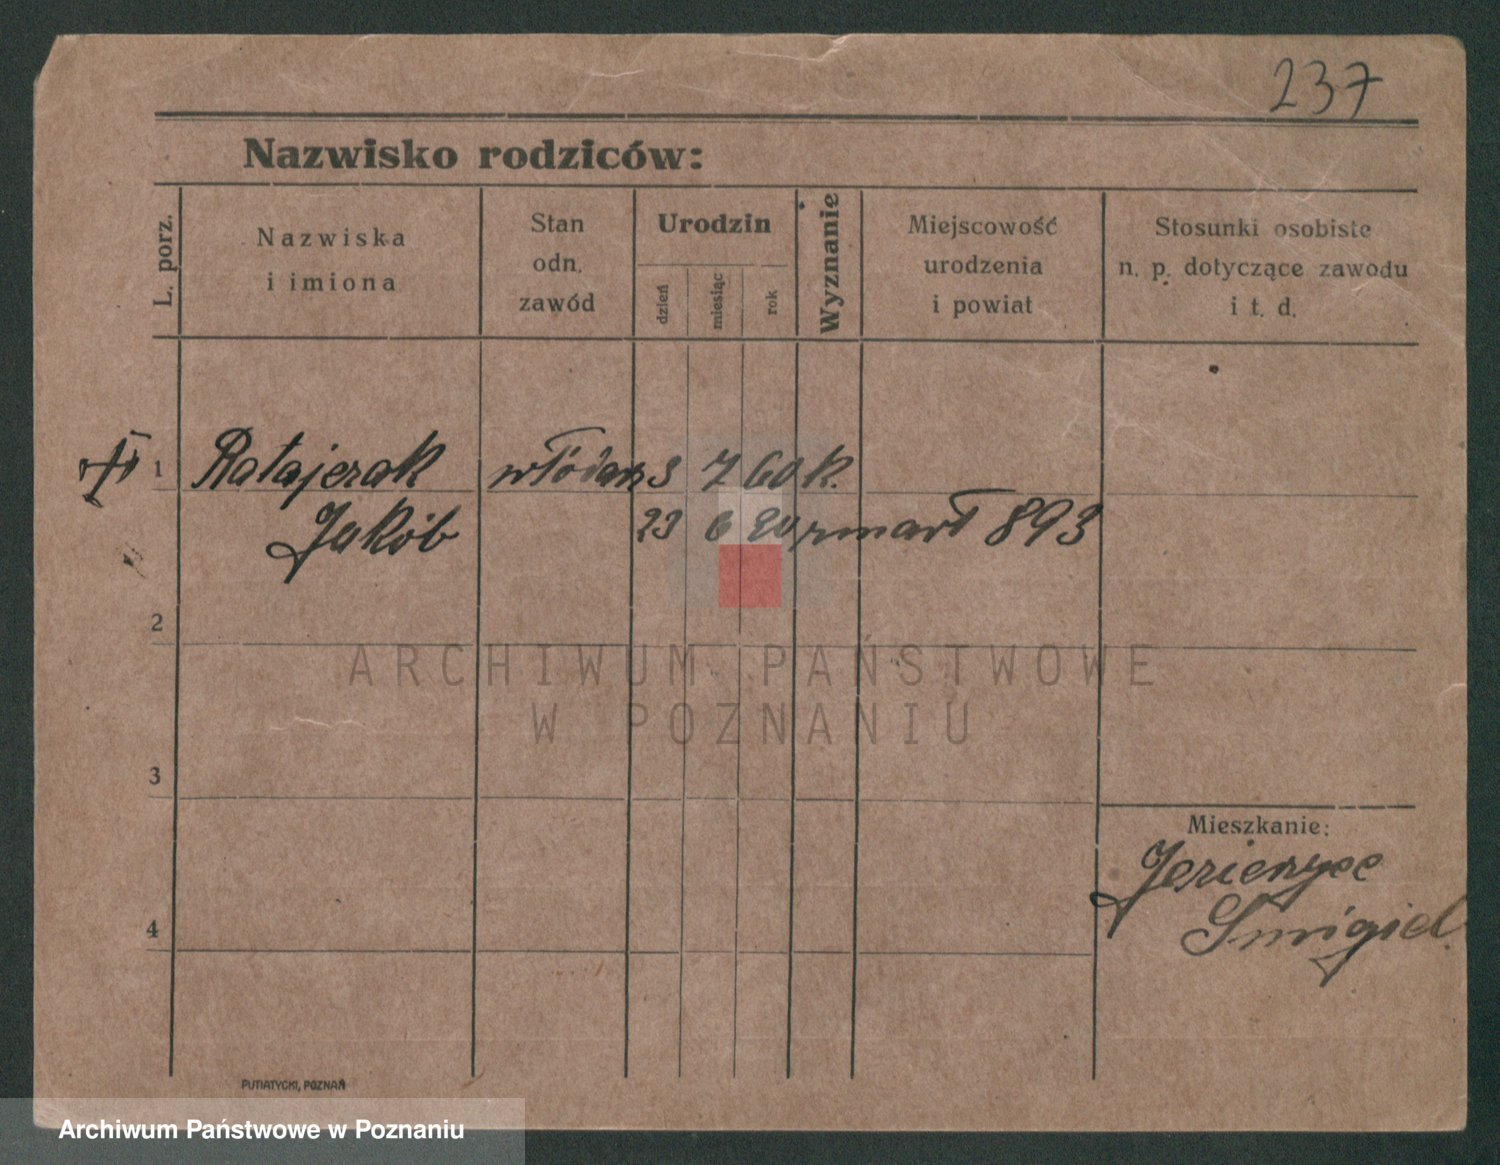 237
Nazwisko rodziców:
L. porz.
Nazwiska
i imiona
Stan
odn.
zawód
Urodzin
dzień
miesiąc
rok
Wyznanie
Miejscowość
urodzenia
i powiat
Stosunki osobiste
n. p. dotyczące zawodu
i t. d.
1 Ratajczak włódarz 3 7 60 k.
Jakób 23 6 20 zmarł 893
2
ARCHIWUM PAŃSTWOWE
W POZNANIU
3
Mieszkanie:
Śmigiel
4
PUTIATYCKI, POZNAŃ
Archiwum Państwowe w Poznaniu